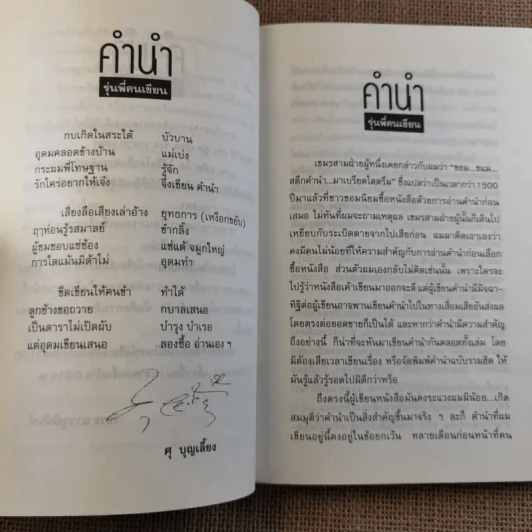 คำนำ
รุ่นพี่คนเขียน
กบเกิดในสระใต้ บัวบาน
อุดมคลอดข้างบ้าน แม่เบ่ง
กระผมพี่โทษฐาน รู้จัก
รักใคร่อยากให้เจ๋ง จึ่งเขียน คำนำ
เสียงลือเสียงเล่าอ้าง ยุทธการ (เหงือกขยับ)
ฤๅห่อนรู้รสมาลย์ ขำกลิ้ง
ผู้ชมชอบแซ่ซ้อง แซ่แต้ จมูกใหญ่
การใดแม้นมิดำไม่ อุดมทำ
ขีดเขียนให้คนขำ ทำได้
ลูกช้างขอถวาย กบาลเสนอ
เป็นดาราไม่เปิดผับ บำรุง บำเรอ
แต่อุดมเขียนเสนอ ลองซื้อ อ่านเอง ฯ
ศุ บุญเลี้ยง
คำนำ
รุ่นพี่คนเขียน
เขมรสามฝ่ายผู้หนึ่งเคยกล่าวกับผมว่า "ขยม...แขม...
สตึกคำนำ...มาเบรียดไดตรึม" ซึ่งแปลว่าเป็นเวลากว่า 1500
ปีมาแล้วที่ชาวขอมนิยมซื้อหนังสือด้วยการอ่านคำนำก่อน
เสมอ ไม่ทันที่ผมจะถามเหตุผล เขมรสามฝ่ายผู้นั้นก็เดินไป
เหยียบกับระเบิดตายจากไปเสียก่อน ผมมาคิดเอาเองว่า
คงมีคนไม่น้อยที่ให้ความสำคัญกับการอ่านคำนำก่อนเลือก
ซื้อหนังสือ ส่วนตัวผมเองกลับไม่คิดเช่นนั้น เพราะใครจะ
ไปรู้ว่าหนังสือเค้าเขียนมาออกจะดี แต่ผู้เขียนคำนำมีมิจฉา-
ทิฐิต่อผู้เขียนอาจพานเขียนคำนำไปในทางเสื่อมเสียอันส่งผล
โดยตรงต่อยอดขายก็เป็นได้ และหากว่าคำนำมีความสำคัญ
ถึงอย่างนี้ ก็น่าที่จะหันมาเขียนคำนำกันตลอดทั้งเล่ม โดย
มิต้องเสียเวลาเขียนเรื่อง หรือจัดพิมพ์คำนำฉบับรวมฮิต ให้
มันรู้แล้วรู้รอดไปมิดีกว่าหรือ
ถึงตรงนี้ผู้เขียนหนังสือมันคงระแวงผมมิน้อย...เกิด
สมมุติว่าคำนำเป็นสิ่งสำคัญขึ้นมาจริง ๆ ละก็ คำนำที่ผม
เขียนอยู่นี้คงอยู่ในข้อยกเว้น หลายเดือนก่อนหน้าที่คน